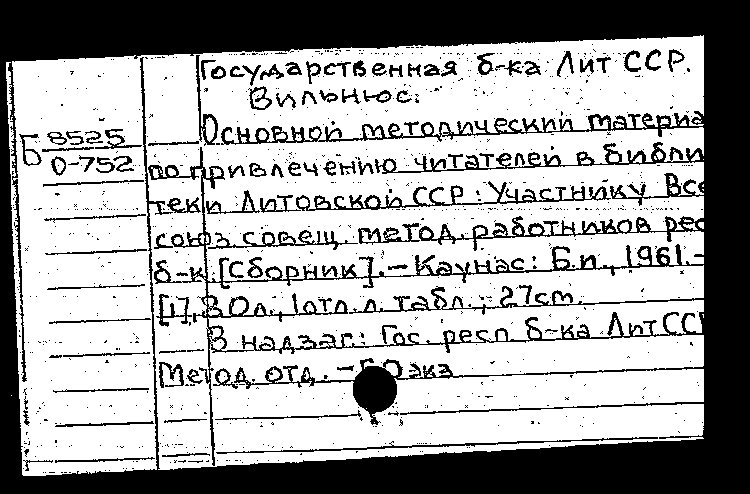 Государственная б-ка Лит ССР.
Вильнюс.
Б 8525
О-752
Основной методический материа
по привлечению читателей в библи
теки Литовской ССР: Участнику Все
союз совещ. метод. работников рес
б-к. [Сборник]. – Каунас: Б.и., 1961. –
[1], 30л., 1отл.л. табл.; 27cm.
В надзаг.: Гос. респ. б-ка Лит ССР
Метод. отд. – экз